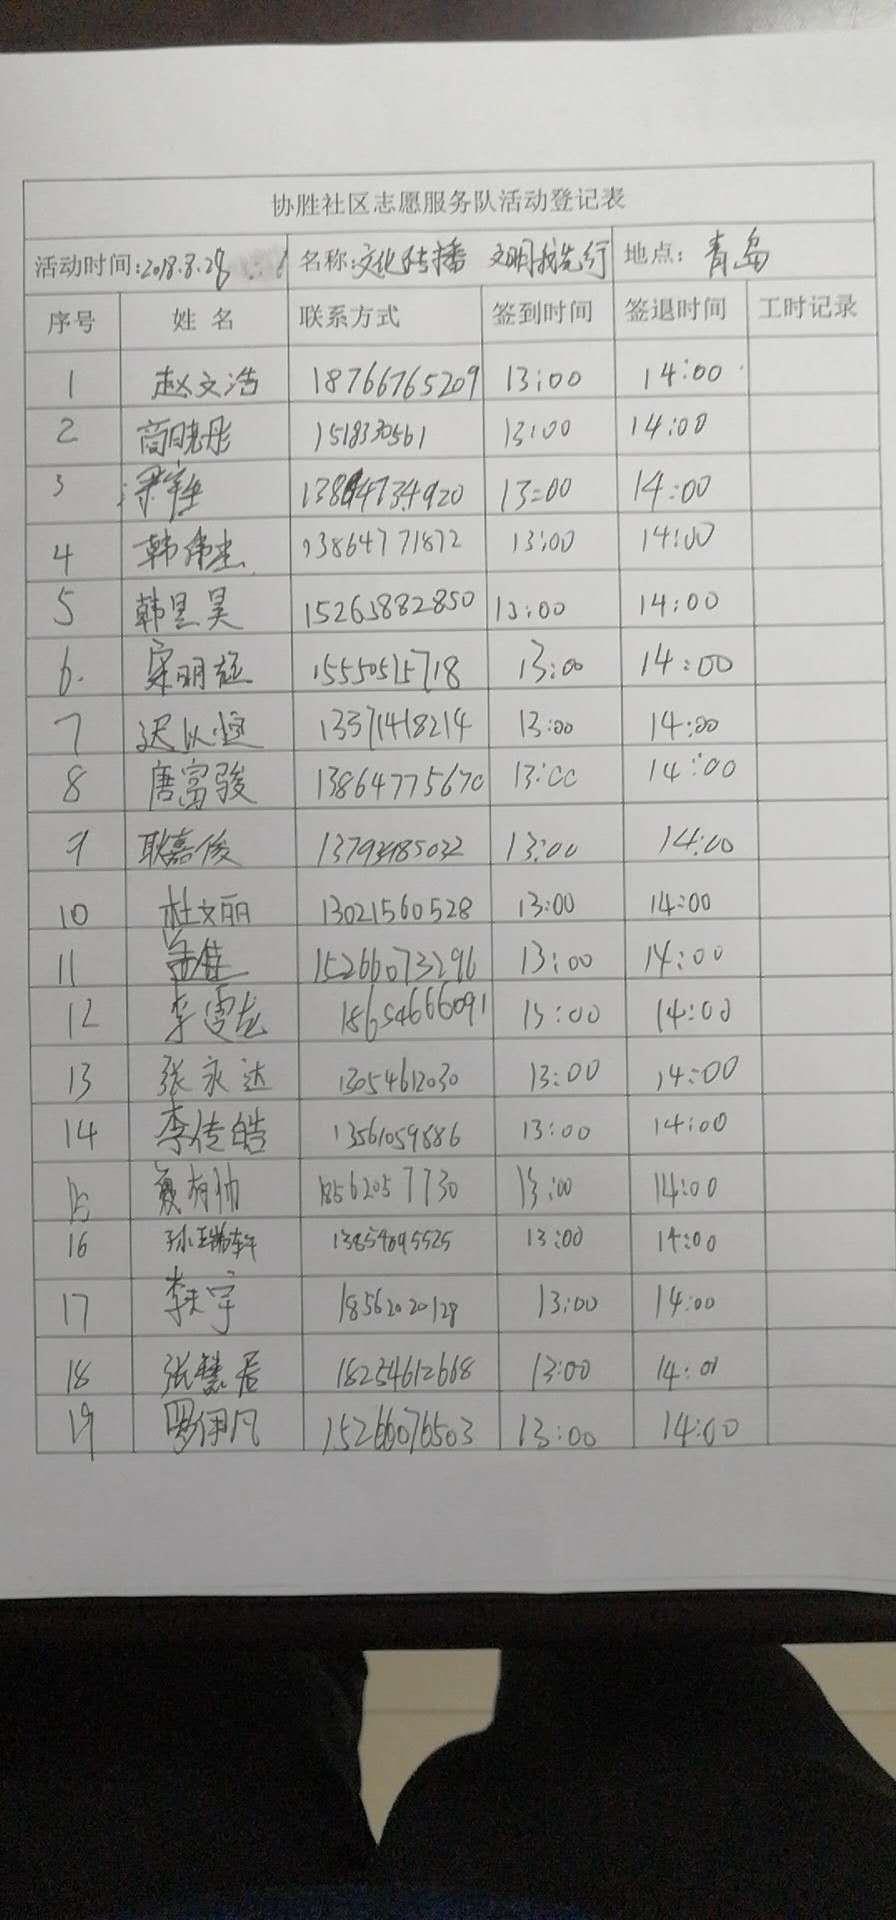 协胜社区志愿服务队活动登记表
活动时间:2018.8.28 名称:文化传播 文明我先行 地点:青岛
序号 姓名 联系方式 签到时间 签退时间 工时记录
1 赵文浩 18766765209 13:00 14:00
2 高晓彤 1518330561 13:00 14:00
3 13864734920 13:00 14:00
4 韩伟杰 13864771872 13:00 14:00
5 韩昱昊 15263882850 13:00 14:00
6. 宋明廷 15550515718 13:00 14:00
7 迟以恒 13371418214 13:00 14:00
8 唐富骏 13864775670 13:00 14:00
9 耿嘉俊 13:00 14:00
10 杜文丽 13021560528 13:00 14:00
11 孟佳 15266073296 13:00 14:00
12 李雪龙 18654666091 13:00 14:00
13 张永达 13054612030 13:00 14:00
14 李传皓 13561059886 13:00 14:00
15 有帅 18562057730 13:00 14:00
16 孙瑞轩 13854095525 13:00 14:00
17 李天宇 18562020128 13:00 14:00
18 张慧君 18254612668 13:00 14:01
19 罗伊凡 15266076503 13:00 14:00